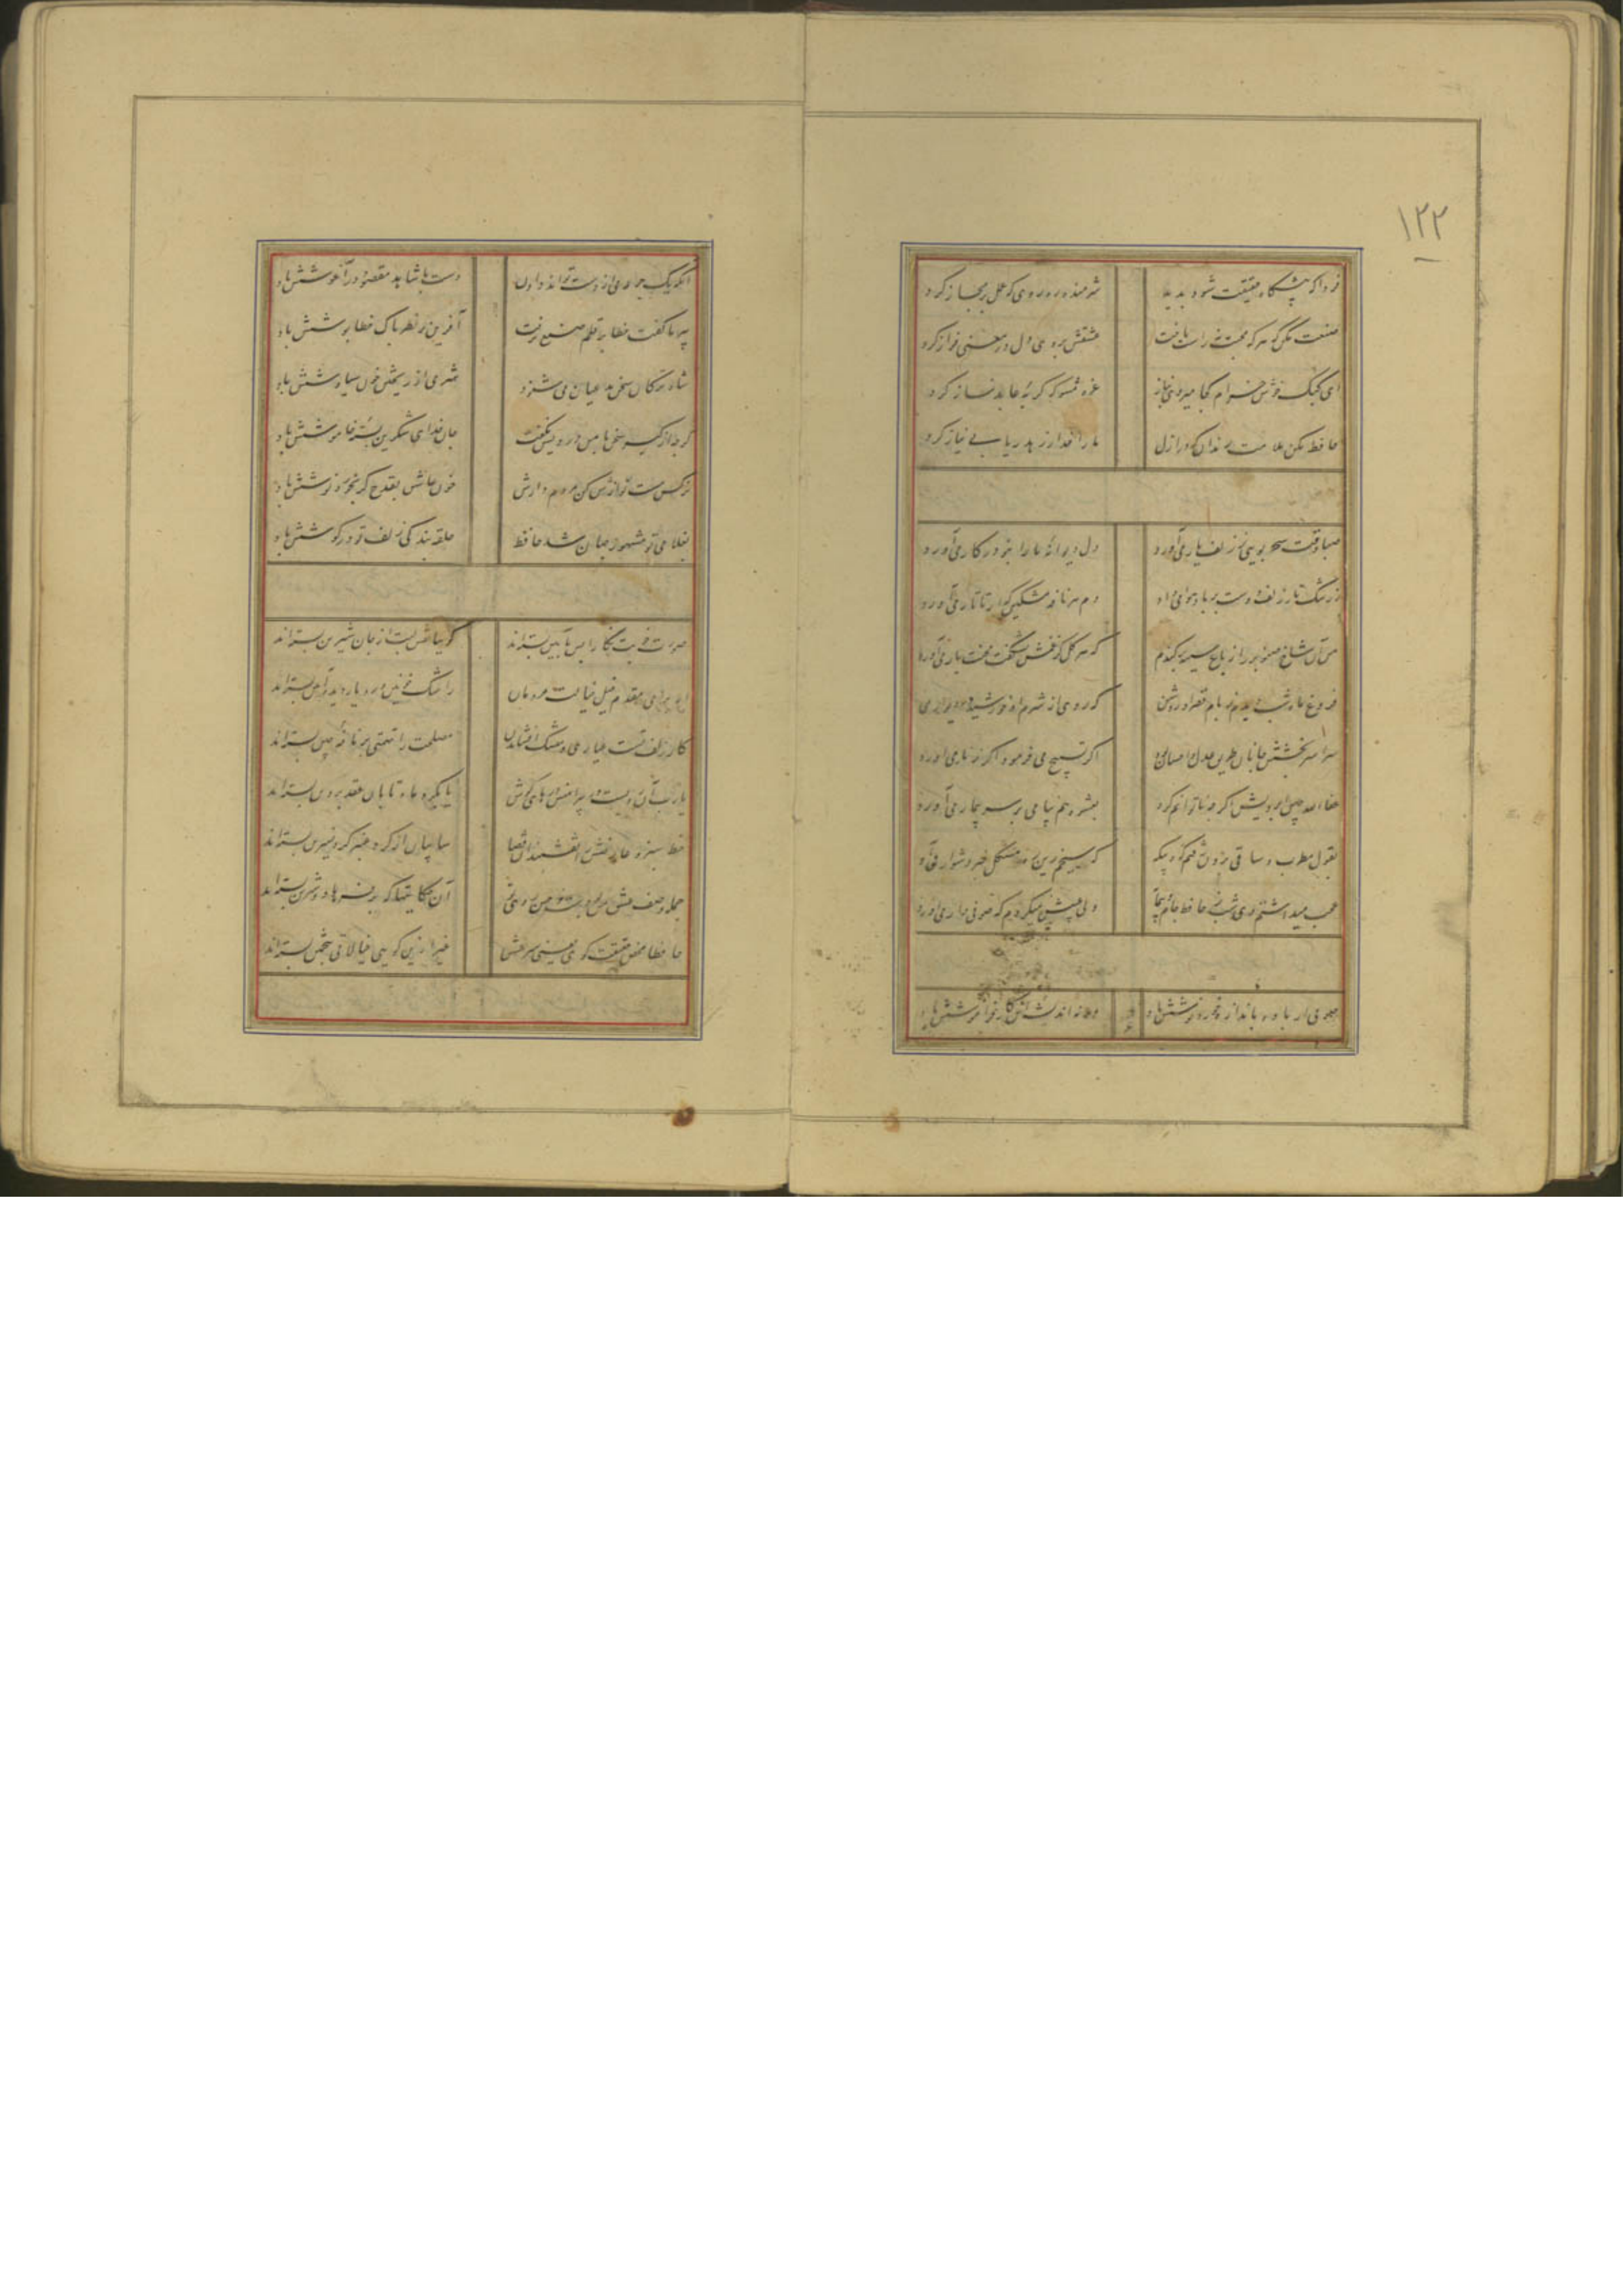 ۱۲۲
فردا که پیشگاه حقیقت شود پدید شرمنده رهروی که عمل بر مجاز کرد
صنعت مکن که هر که محبت نه راست باخت عشقش بروی دل در معنی فراز کرد
ای کبک خوش خرام کجا میروی بناز غره مشو که گربه عابد نماز کرد
حافظ مکن ملامت رندان که در ازل ما را خدا ز زهد ریا بی نیاز کرد
صبا وقت سحر بویی ز زلف یار می آورد دل دیوانه ما را بنو در کار می آورد
ز رشک تار زلف دوست بر باد هوا می داد دم هر نافه مشکین که از تاتار می آورد
من آن شاخ صنوبر را ز باغ سینه برکندم که هر گل کز غمش بشکفت محنت بار می آورد
فروغ ماه شب دیدم ز بام قصر او روشن که روی از شرم او خورشید در دیوار می
سراسر بخشش جانان طریق عدل و احسان بود اگر تسبیح می فرمود اگر زنار می آورد
عفا الله چین ابرویش اگر چه ناتوانم کرد بعشوه هم پیامی بر سر بیمار می آورد
بقول مطرب و ساقی برون رفتم گه و بیگه کز
عجب میداشتم دی شب ز حافظ جام و پیمانه ولی منعش نمیکردم که صوفی وار می آورد
صوفی ار باده باندازه خورد نوشش باد ورنه اندیشه این کار فراموشش باد
آنکه یک جرعه می از دست تواند دادن دست با شاهد مقصود در آغوشش باد
پیر ما گفت خطا بر قلم صنع نرفت آفرین بر نظر پاک خطا پوشش باد
شاه ترکان سخن مدعیان می شنود شرمی از خون سیاوشش باد
گرچه از کبر سخن با من درویش نگفت جان فدای شکرین پسته خاموشش باد
نرگس مست نوازش کن مردم دارش خون عاشق بقدح گر بخورد نوشش باد
بغلامی تو مشهور جهان شد حافظ حلقه بندگی زلف تو در گوشش باد
صورت خوبت نگارا بس بآیین بسته اند گوییا نقش لبت از جان شیرین بسته اند
از برای مقدم خیل خیالت مردمان ز اشک خونین در دیار دیده آیین بسته اند
کار زلف تست عیاری و مشک افشاندن مصلحت را تهمتی بر نافه چین بسته اند
یا رب آن رویست و در پیرامنش یا بگرد ماه تابان عقد پروین بسته اند
خط سبز و عارضش نقشبندان قضا سایبان از گرد عنبر گرد نسرین بسته اند
جمله وصف عشق من بودست و حسن روی تو آن حکایتها که بر فرهاد و شیرین بسته اند
حافظا محض حقیقت گوی یعنی سر عشق غیر ازین گویی خیالاتی بتخمین بسته اند